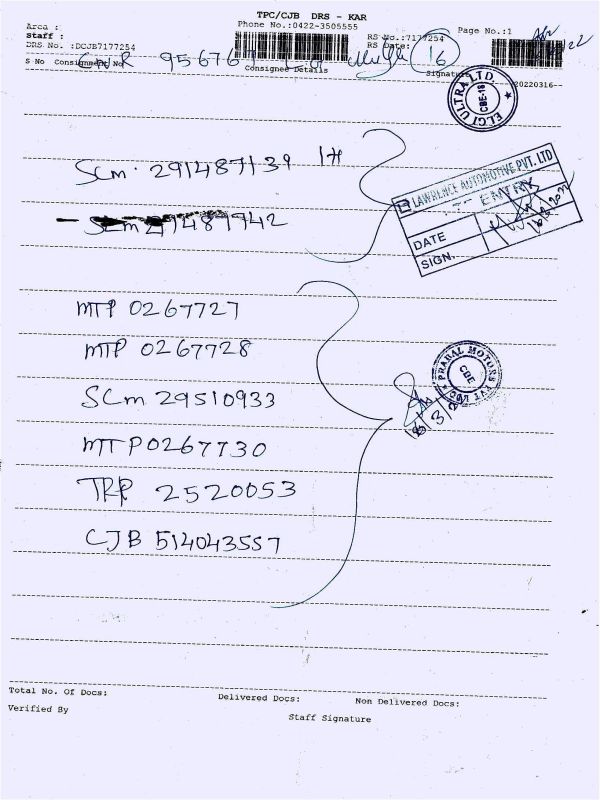 TPC/CJB DRS - KAR
Area :
Phone No.:0422-3505555
Page No.:1
Staff :
RS No.:7177254
DRS No. :DCJB7177254
RS Date:
S No Consignment No
Consignee Details
Signature
20220316--
956767
16
ELGI ULTRA LTD.
CBE-18
SCM 291487139 1H
LAWRENCE AUTOMOTIVE PVT. LTD
ENTRY
DATE
SIGN.
MTP 0267727
MTP 0267728
PRABAL MOTORS PVT LTD
CBE
SCM 29510933
MTP 0267730
TRP 2520053
CJB 514043557
Total No. Of Docs:
Delivered Docs:
Non Delivered Docs:
Verified By
Staff Signature